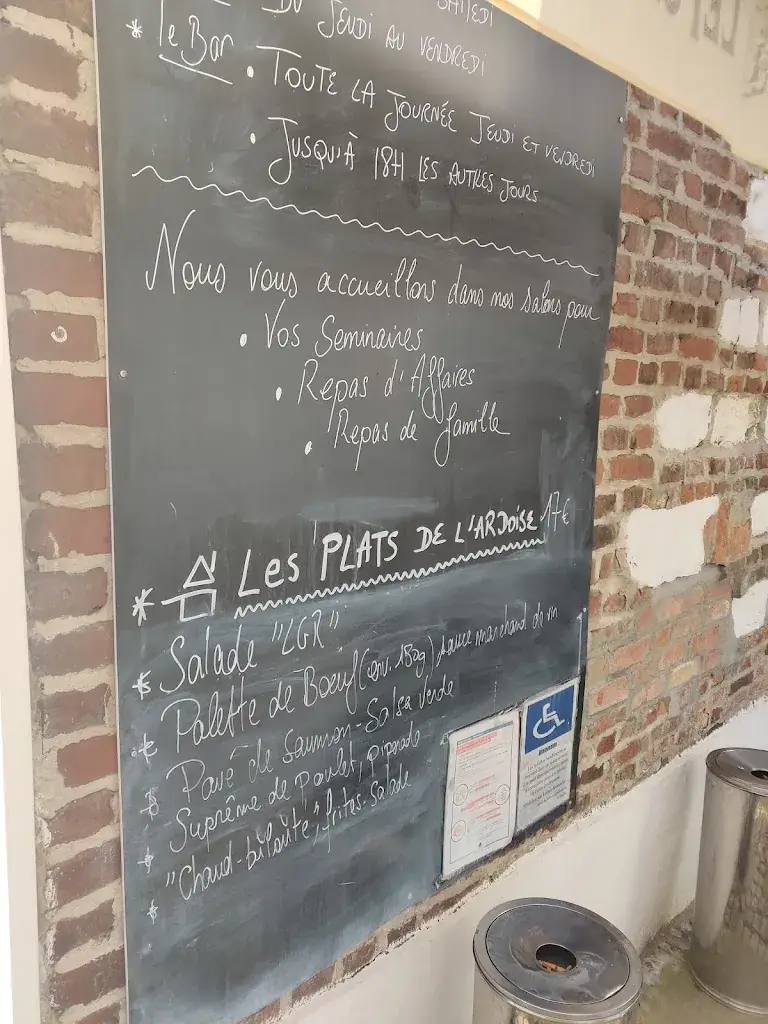 DU JEUDI AU VENDREDI
* le Bar
• TOUTE LA JOURNÉE JEUDI ET VENDREDI
• JUSQU'À 18H LES AUTRES JOURS
Nous vous accueillons dans nos salons pour
• Vos Seminaires
• Repas d'Affaires
• Repas de famille
* Les PLATS DE L'ARDOISE 17€
* Salade "LGR"
* Palette de Boeuf (env. 180g), sauce marchand de vin
* Pavé de saumon - Salsa verde
* Suprême de poulet, piperade
* "Chaud-biloute", frites-salade